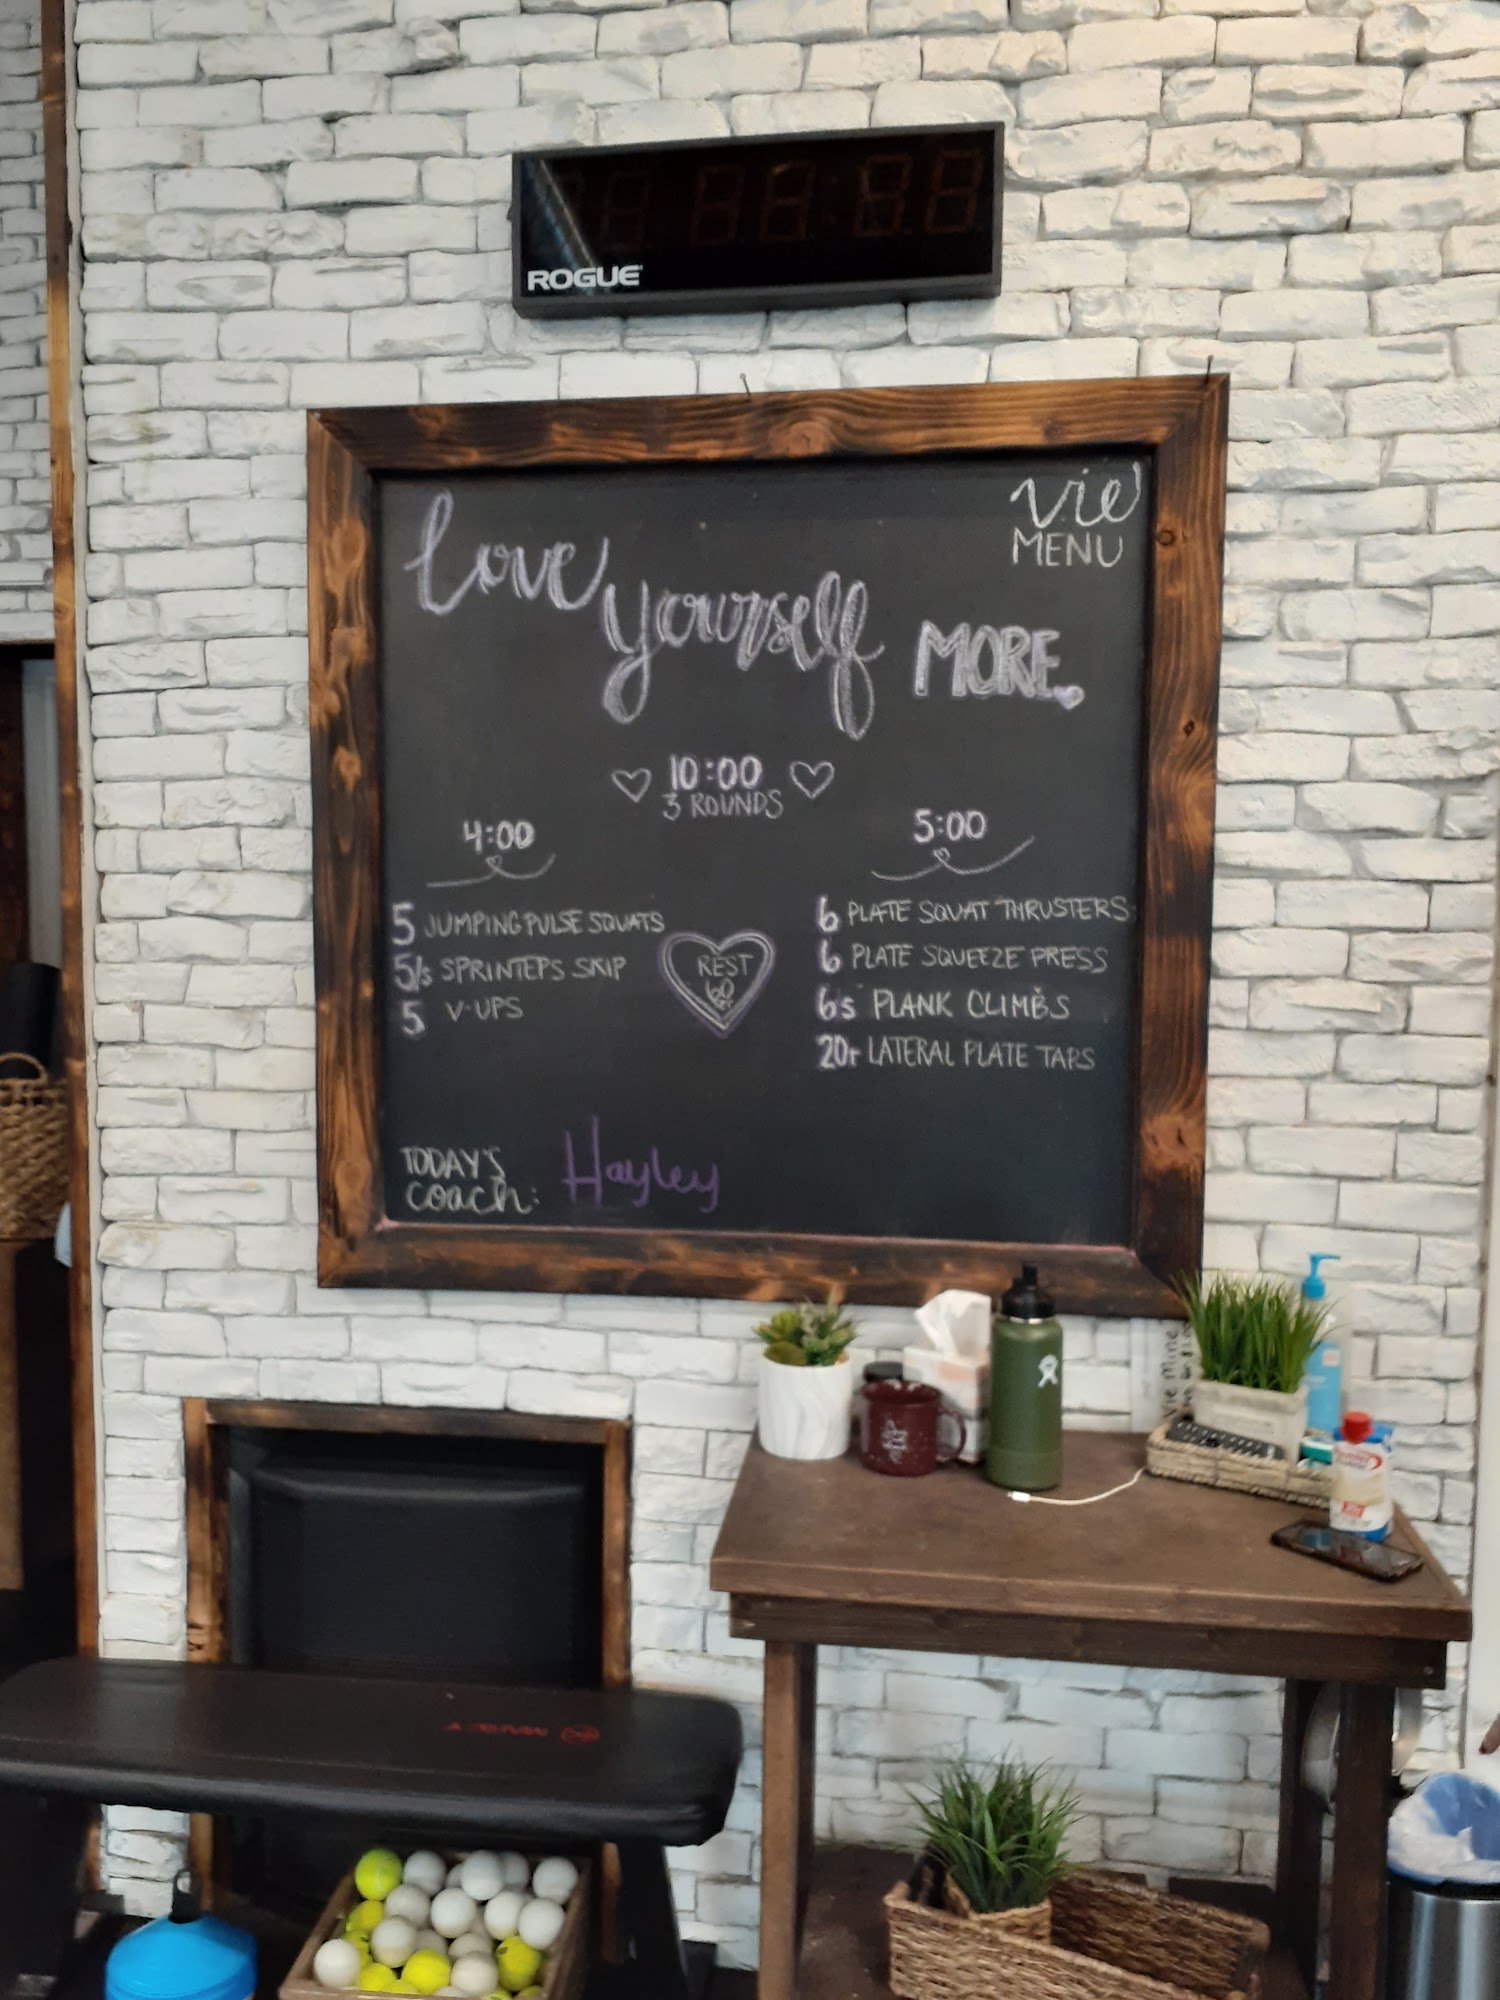 ROGUE
vie
MENU
love yourself MORE.
10:00
3 ROUNDS
4:00
5 JUMPING PULSE SQUATS
5/s SPRINTERS SKIP
5 V-UPS
REST
60
sec
5:00
6 PLATE SQUAT THRUSTERS
6 PLATE SQUEEZE PRESS
6s PLANK CLIMBS
20r LATERAL PLATE TAPS
TODAY'S
coach: Hayley